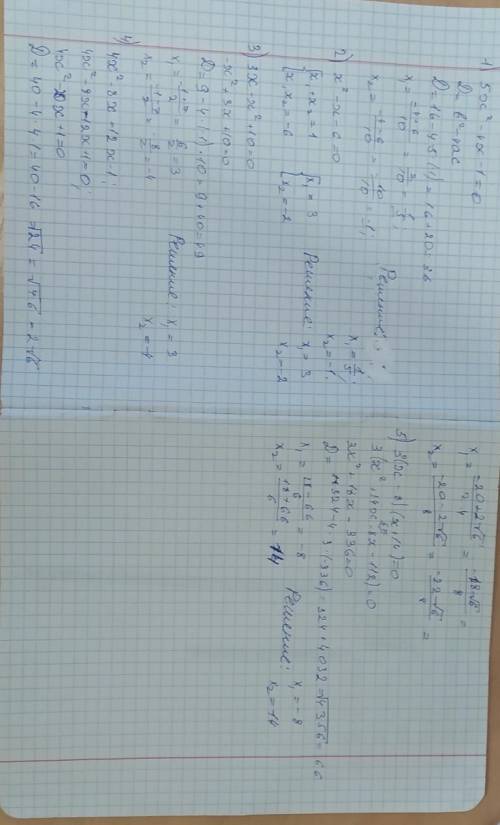 1) 5x² + 4x - 1 = 0
D = b² - 4ac
D = 16 - 4·5·(-1) = 16 + 20 = 36
x₁ = (-4+6)/10 = 2/10 = 1/5;
x₂ = (-4-6)/10 = -10/10 = -1;
Решение: x₁ = 1/5;
x₂ = -1;
2) x² - x - 6 = 0
{x₁ + x₂ = 1 {x₁ = 3
{x₁x₂ = -6 {x₂ = -2
Решение: x₁ = 3
x₂ = -2
3) 3x - x² + 10 = 0
-x² + 3x + 10 = 0
D = 9 - 4·(-1)·10 = 9 + 40 = 49
x₁ = (-1+7)/2 = 6/2 = 3
x₂ = (-1-7)/2 = -8/2 = -4
Решение: x₁ = 3
x₂ = -4
4) 4x² 8x = 12x - 1;
4x² - 8x - 12x + 1 = 0;
4x² x + 1 = 0
D = 40 - 4·4·1 = 40 - 16 = √24 = √4·6 = 2√6
x₁ = (-20+2√6)/ = (-18√6)/8 =
x₂ = (-20-2√6)/8 = (-22-√6) =
5) 3(x - 8)(x + 14) = 0
3(x² + 14x - 8x - 112) = 0
3x² + 18x - 336 = 0
D = 324 - 4·3·(-336) = 324 + 4032 = √4356 = 66
x₁ = (18-66)/6 = -8
x₂ = (18+66)/6 = 14
Решение: x₁ = -8
x₂ = 14